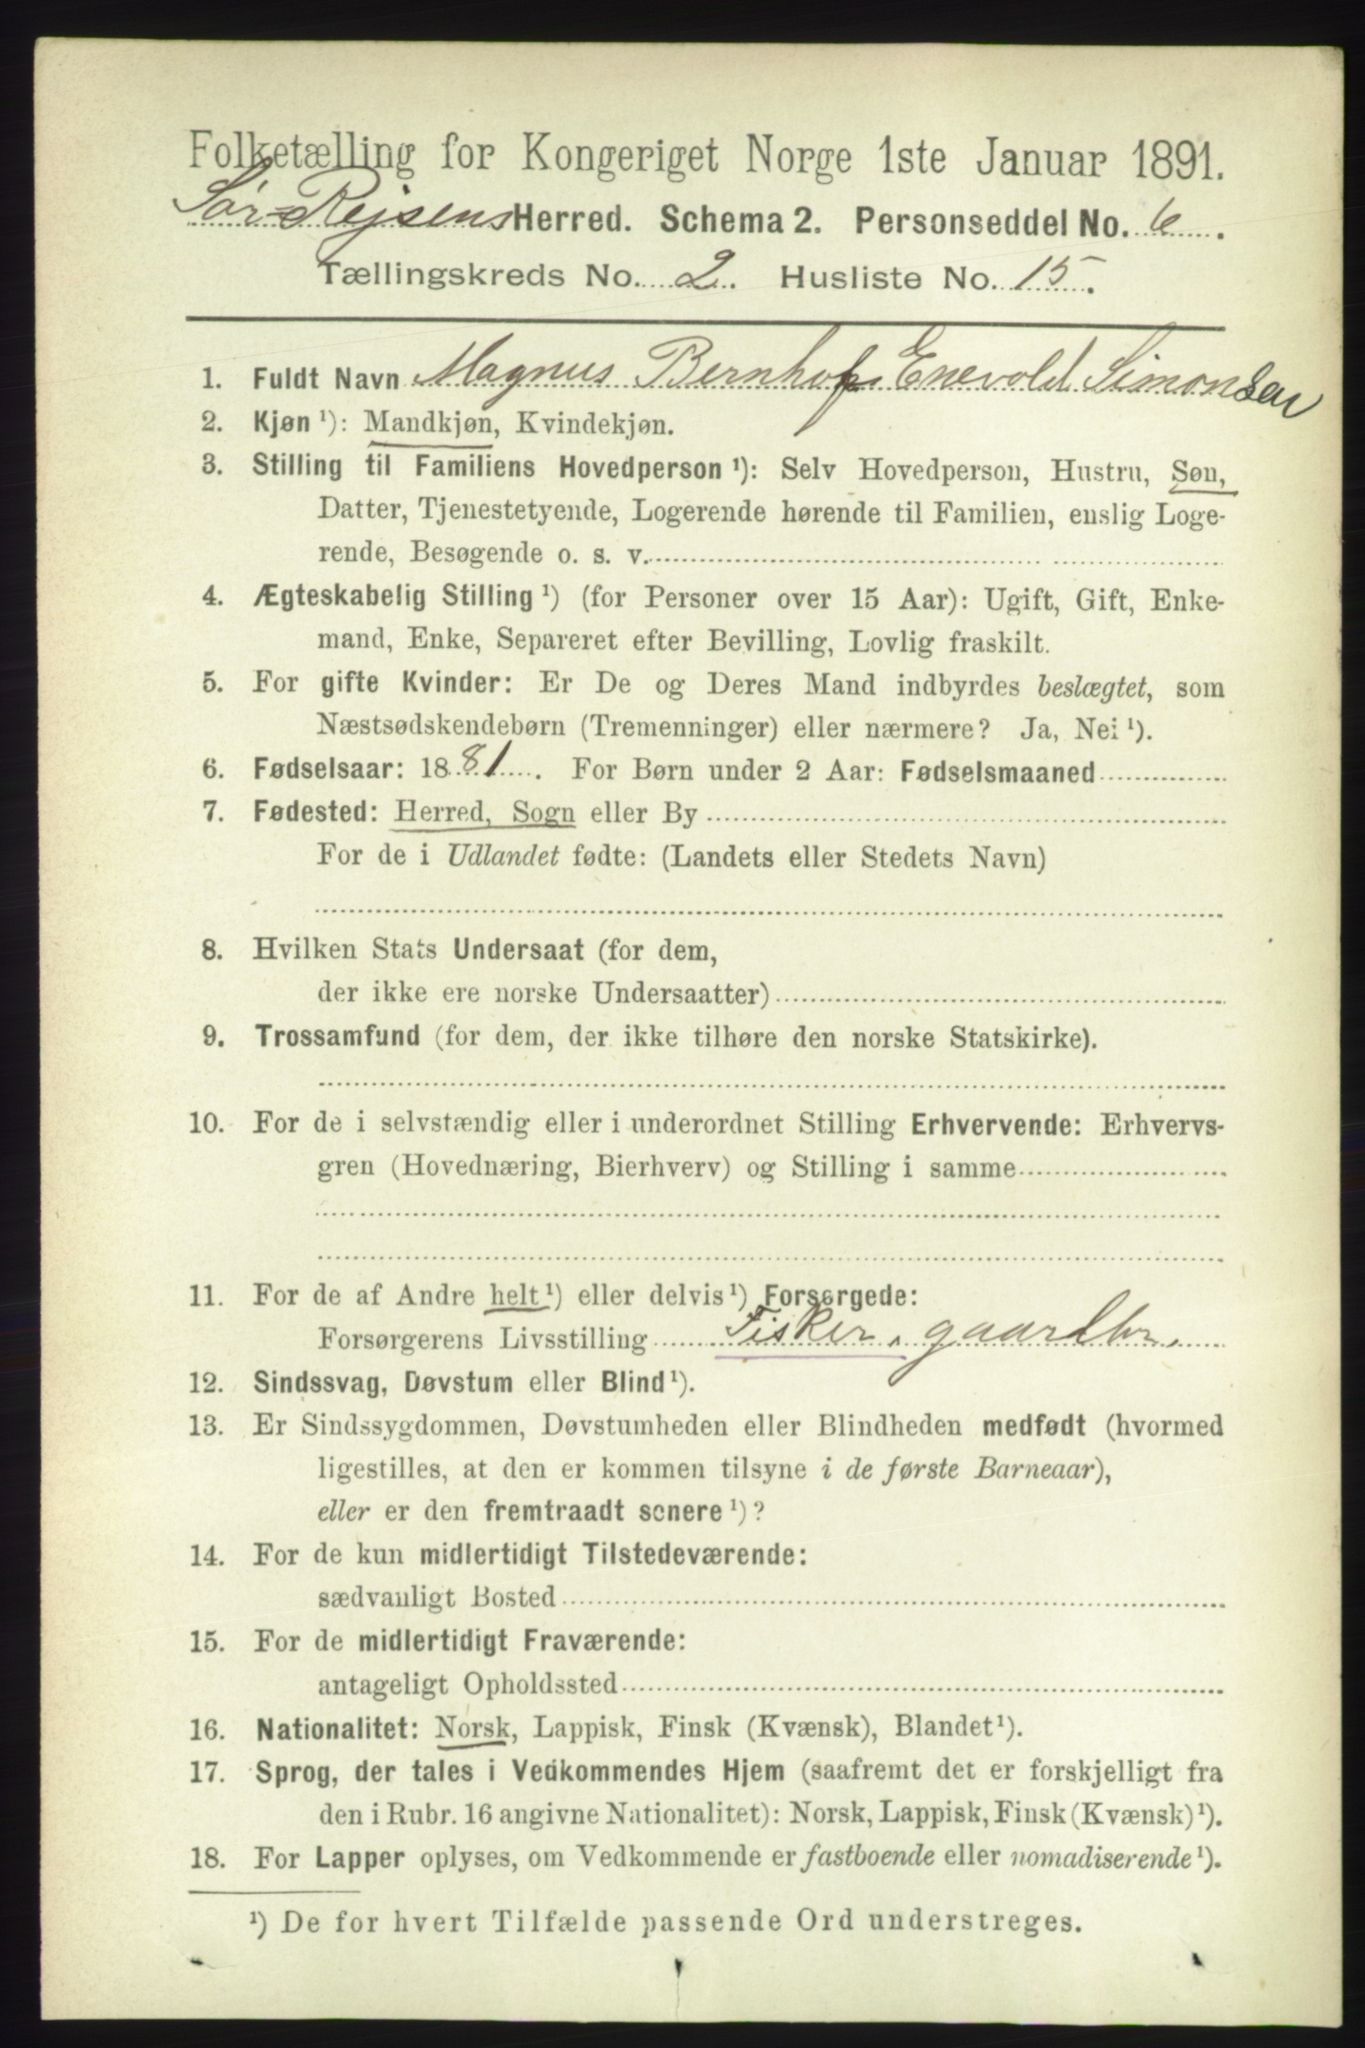 Folketælling for Kongeriget Norge 1ste Januar 1891.
Sør-Rejsens Herred. Schema 2. Personseddel No. 6.
Tællingskreds No. 2. Husliste No. 15.
1. Fuldt Navn Magnus Bernhof Enevold Simonsen
2. Kjøn ¹): Mandkjøn, Kvindekjøn.
3. Stilling til Familiens Hovedperson ¹): Selv Hovedperson, Hustru, Søn,
Datter, Tjenestetyende, Logerende hørende til Familien, enslig Loge-
rende, Besøgende o. s. v.
4. Ægteskabelig Stilling ¹) (for Personer over 15 Aar): Ugift, Gift, Enke-
mand, Enke, Separeret efter Bevilling, Lovlig fraskilt.
5. For gifte Kvinder: Er De og Deres Mand indbyrdes beslægtet, som
Næstsødskendebørn (Tremenninger) eller nærmere? Ja, Nei ¹).
6. Fødselsaar: 1881. For Børn under 2 Aar: Fødselsmaaned
7. Fødested: Herred, Sogn eller By
For de i Udlandet fødte: (Landets eller Stedets Navn)
8. Hvilken Stats Undersaat (for dem,
der ikke ere norske Undersaatter)
9. Trossamfund (for dem, der ikke tilhøre den norske Statskirke).
10. For de i selvstændig eller i underordnet Stilling Erhvervende: Erhvervs-
gren (Hovednæring, Bierhverv) og Stilling i samme
11. For de af Andre helt ¹) eller delvis ¹) Forsørgede:
Forsørgerens Livsstilling Fisker, gaardbr.
12. Sindssvag, Døvstum eller Blind ¹).
13. Er Sindssygdommen, Døvstumheden eller Blindheden medfødt (hvormed
ligestilles, at den er kommen tilsyne i de første Barneaar),
eller er den fremtraadt senere ¹)?
14. For de kun midlertidigt Tilstedeværende:
sædvanligt Bosted
15. For de midlertidigt Fraværende:
antageligt Opholdssted
16. Nationalitet: Norsk, Lappisk, Finsk (Kvænsk), Blandet ¹).
17. Sprog, der tales i Vedkommendes Hjem (saafremt det er forskjelligt fra
den i Rubr. 16 angivne Nationalitet): Norsk, Lappisk, Finsk (Kvænsk) ¹).
18. For Lapper oplyses, om Vedkommende er fastboende eller nomadiserende ¹).
¹) De for hvert Tilfælde passende Ord understreges.